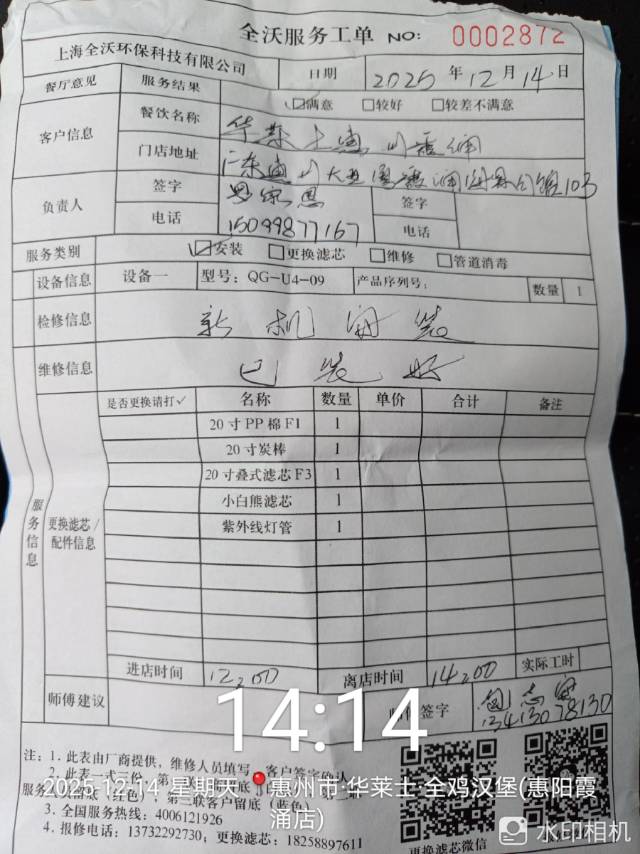 全沃服务工单 NO: 0002872
上海全沃环保科技有限公司 日期 2025年12月14日
餐厅意见 服务结果 ☑满意 □较好 □较差不满意
客户信息 餐饮名称 华莱士惠州霞涌
门店地址 广东惠州大亚湾霞涌
负责人 签字 签字
电话 15099877167 电话
服务类别 ☑安装 □更换滤芯 □维修 □管道消毒
设备信息 设备一 型号：QG-U4-09 产品序列号： 数量 1
检修信息 新机安装
维修信息 已装好
服务信息
更换滤芯/配件信息
是否更换请打✓ 名称 数量 单价 合计 备注
20寸PP棉F1 1
20寸炭棒 1
20寸叠式滤芯F3 1
小白熊滤芯 1
紫外线灯管 1
进店时间 12:00 离店时间 14:00 实际工时
师傅建议 师傅签字
13413078130
14:14
注：1. 此表由厂商提供，维修人员填写，客户签字确认
2. 此表一式三份，第一联
服务 (红色)，第三联客户留底（蓝色）
3. 全国服务热线：4006121926
4. 报修电话：13732292730；更换滤芯：18258897611
更换滤芯微信
2025-12-14 星期天 惠州市·华莱士·全鸡汉堡(惠阳霞
涌店)
水印相机